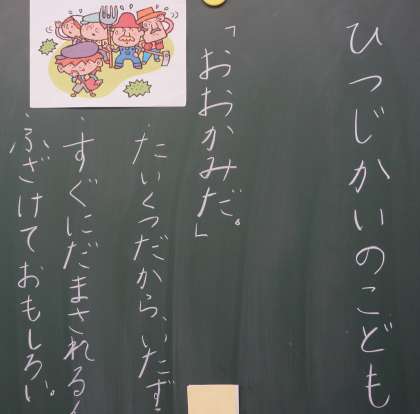 ひつじかいのこども
「おおかみだ。」
・たいくつだから、いたず
・すぐにだまされる
・ふざけておもしろい。